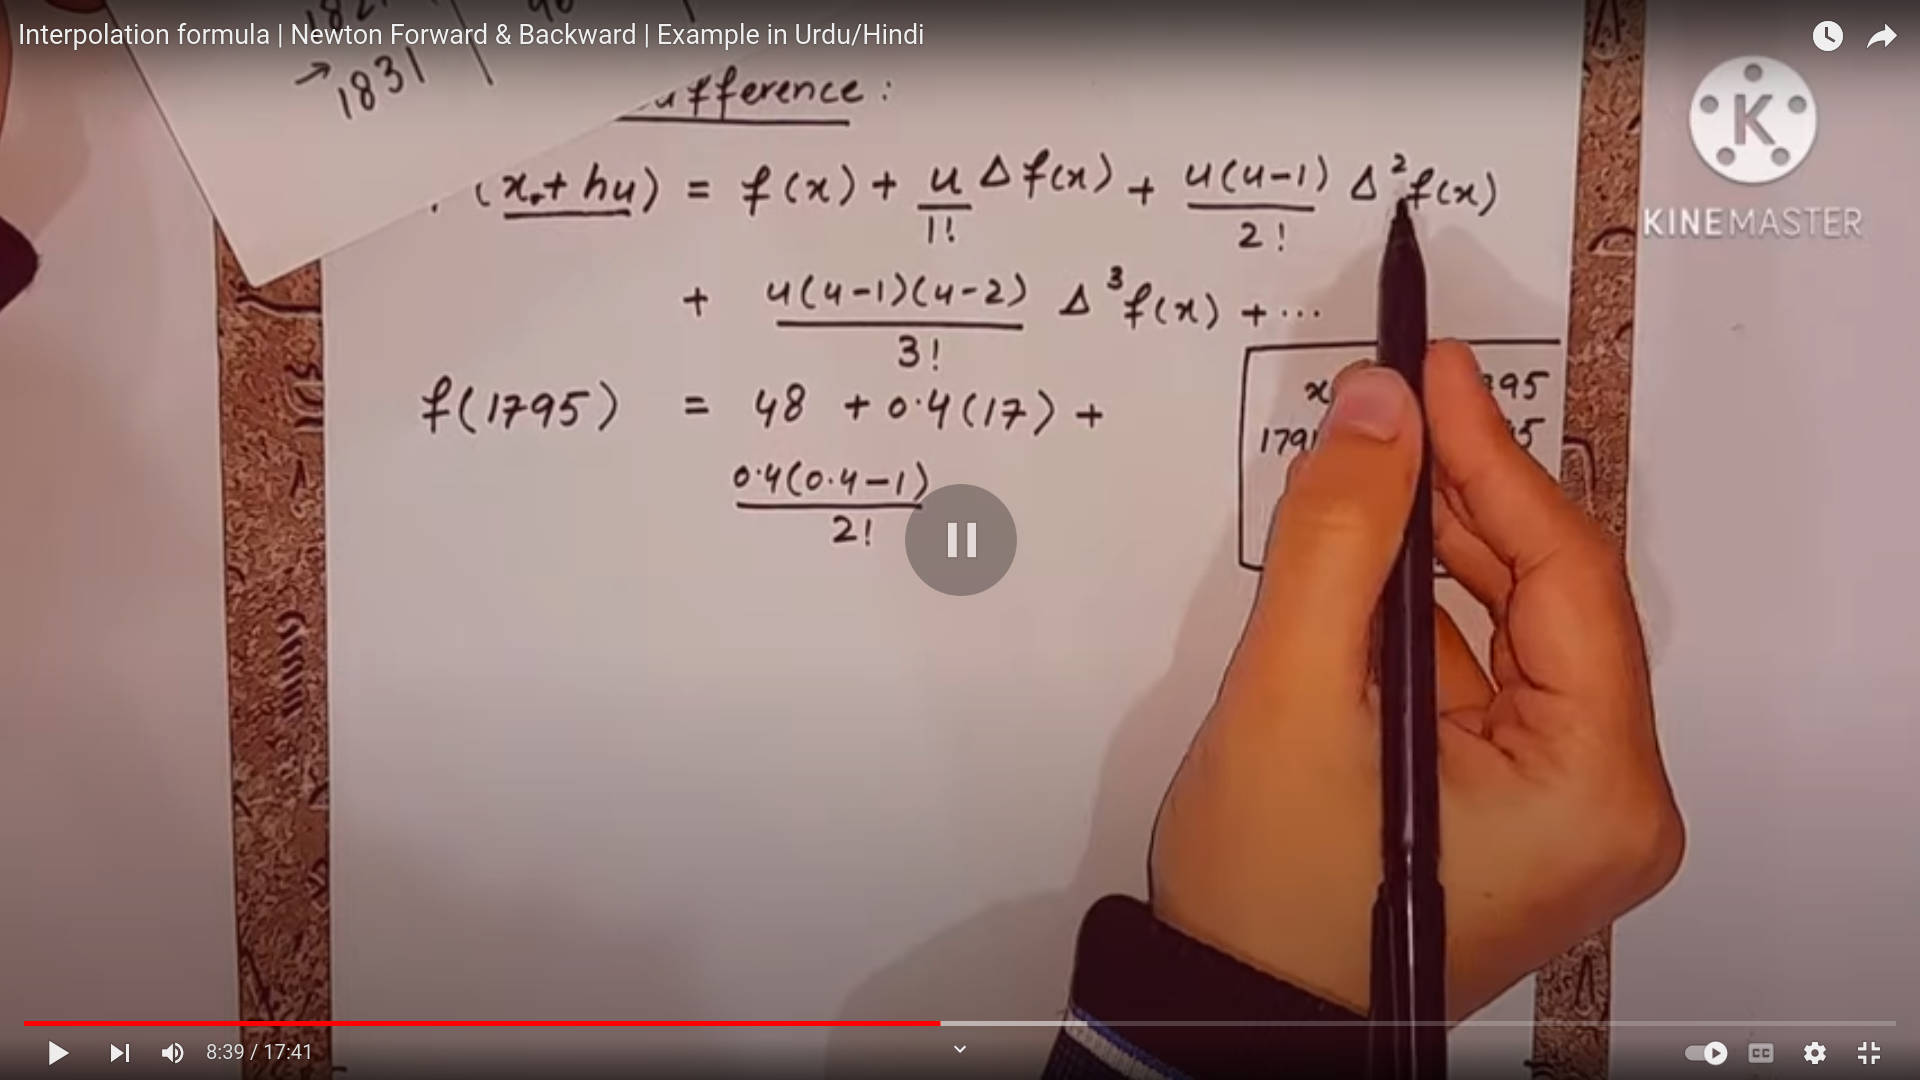 Interpolation formula | Newton Forward & Backward | Example in Urdu/Hindi
→ 1831
fference :
(x₀ + hu) = f(x) + u/1! Δf(x) + u(u-1)/2! Δ²f(x)
+ u(u-1)(u-2)/3! Δ³f(x) + ...
f(1795) = 48 + 0.4(17) +
0.4(0.4-1)/2!
x
95
179
5
K
KINEMASTER
8:39 / 17:41
CC